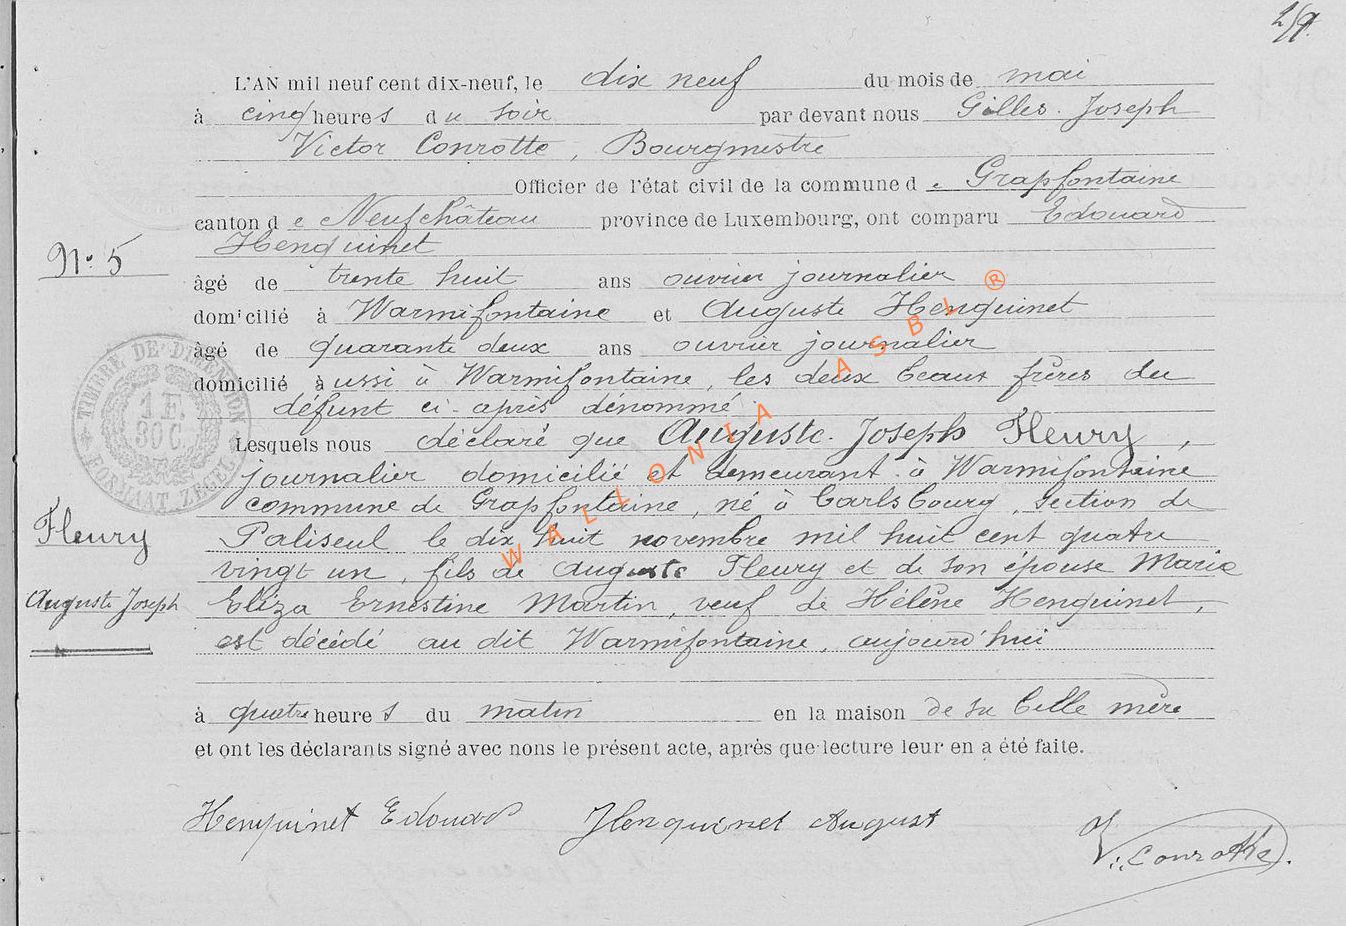 2/9.
L'AN mil neuf cent dix-neuf, le dix neuf du mois de mai
à cinq heures du soir par devant nous Gilles. Joseph
Victor Conrotte, Bourgmestre
Officier de l'état civil de la commune de Grapfontaine
canton de Neufchâteau province de Luxembourg, ont comparu Edouard
Henquinet
N° 5
âgé de trente huit ans ouvrier journalier
domicilié à Warmifontaine et Auguste Henquinet
âgé de quarante deux ans ouvrier journalier
domicilié aussi à Warmifontaine, les deux beaux frères du
défunt ci-après dénommé.
Lesquels nous déclaré que Auguste. Joseph Fleury,
journalier domicilié et demeurant à Warmifontaine
commune de Grapfontaine, né à Carlsbourg, section de
Fleury
Paliseul le dix huit novembre mil huit cent quatre
vingt un, fils de Auguste Fleury et de son épouse Marie
Auguste Joseph
Eliza Ernestine Martin, veuf de Hélène Henquinet,
est décédé au dit Warmifontaine, aujourd'hui
à quatre heures du matin en la maison de sa belle mère
et ont les déclarants signé avec nous le présent acte, après que lecture leur en a été faite.
Henquinet Edouard Henquinet August
V. Conrotte.
TIMBRE DE DIMENSION
1 F.
30 C.
FORMAAT ZEGEL
WALLONIA ASBL ®